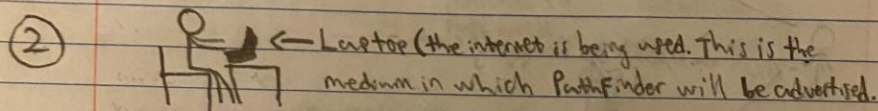 ② ← Laptop (the internet is being used. This is the
medium in which Pathfinder will be advertised.